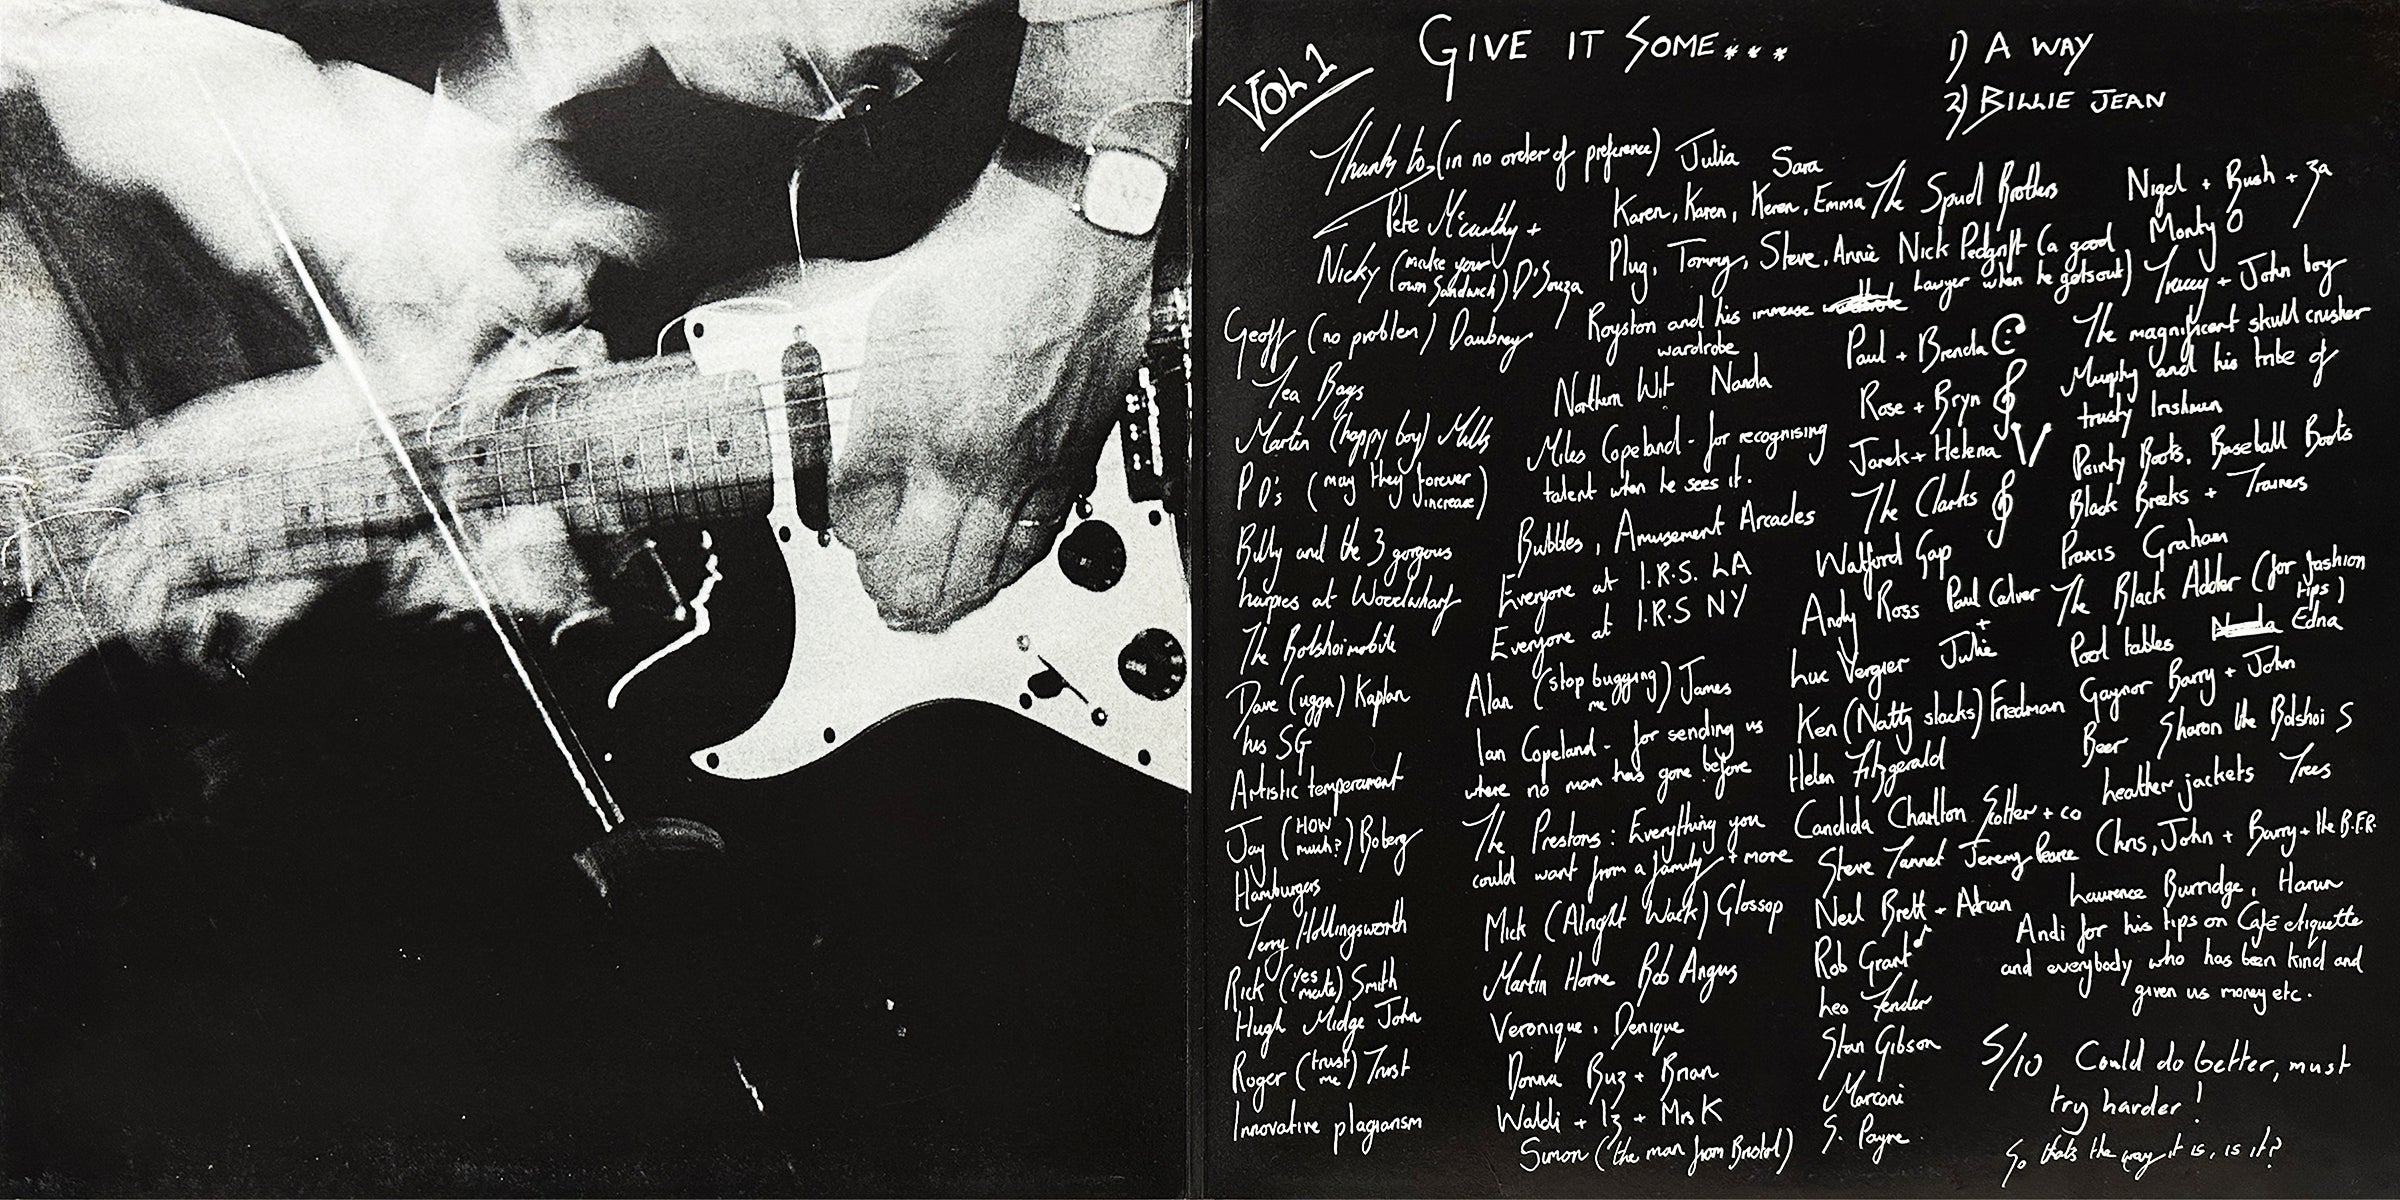 VOL 1
GIVE IT SOME...
1) A WAY
2) BILLIE JEAN
Thanks to (in no order of preference) Julia Sara
Pete McCarthy +
Nicky (make your own Sandwich) D'Souza
Geoff (no problem) Daubney
Tea Bags
Martin (happy boy) Mills
P D's (may they forever increase)
Billy and the 3 gorgous
harpies at Woodwharf
The Bolshoimobile
Dave (ugga) Kaplan
his SG
Artistic temperament
Jay (HOW much?) Boberg
Hamburgers
Terry Hollingsworth
Rick (yes mate) Smith
Hugh Midge John
Roger (trust me) Trust
Innovative plagiarism
Karen, Karen, Keren, Emma The Spud Brothers
Plug, Tommy, Steve, Annie Nick Pedgrift (a good
Lawyer when he gets out)
Royston and his immense
wardrobe
Northern Wit Nanda
Miles Copeland - for recognising
talent when he sees it.
Bubbles, Amusement Arcades
Everyone at I.R.S. LA
Everyone at I.R.S NY
Alan (stop bugging me) James
Ian Copeland - for sending us
where no man has gone before
The Prestons: Everything you
could want from a family + more
Mick (Alright Wack) Glossop
Martin Horne Bob Angus
Veronique, Denique
Donna Buz + Brian
Waldi + Iz + Mrs K
Simon (the man from Bristol)
Paul + Brenda
Rose + Bryn
Jarek + Helena
The Clarks
Watford Gap
Andy Ross Paul Calver
+
Luc Vergier Julie
Ken (Natty slacks) Friedman
Helen Fitzgerald
Candida Charlton Scotter + co
Steve Tannet Jeremy Pearce
Neil Brett + Adrian
Rob Grant
Leo Fender
Stan Gibson
Marconi
S. Payne.
Nigel + Bush + 3a
Monty O
Tracey + John boy
The magnificent skull crusher
Murphy and his tribe of
trusty Irishmen
Pointy Boots, Baseball Boots
Black Breeks + Trainers
Praxis Graham
The Black Adder (for fashion
tips)
Pool tables Edna
Gaynor Barry + John
Beer Sharon the Bolshoi S
Leather jackets Trees
Chris, John + Barry + the B.F.R.
Laurence Burridge, Harun
Andi for his tips on Café etiquette
and everybody who has been kind and
given us money etc.
5/10 Could do better, must
try harder!
So thats the way it is, is it?